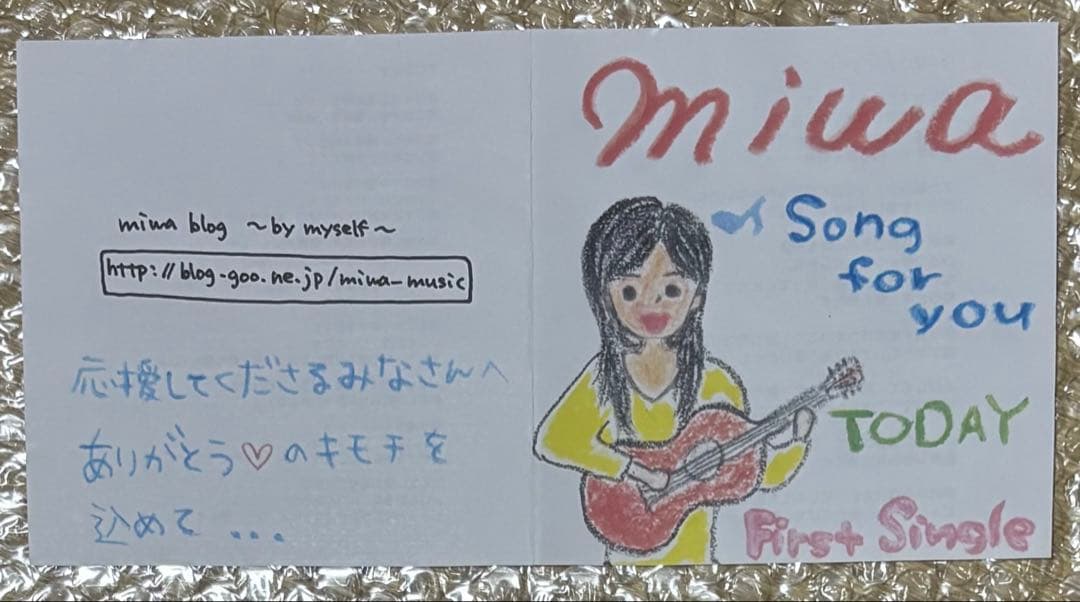 miwa blog ～by myself～
http://blog-goo.ne.jp/miwa-music
応援してくださるみなさんへ
ありがとう♡のキモチを
込めて...
miwa
Song
for
you
TODAY
First Single